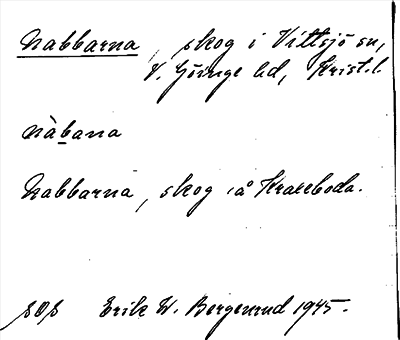 Nabbarna, skog i Vittsjö sn,
V. Göinge hd, Krist.l.
nàbana
Nabbarna, skog å Kraxeboda.
Erik W. Bergenrud 1945.